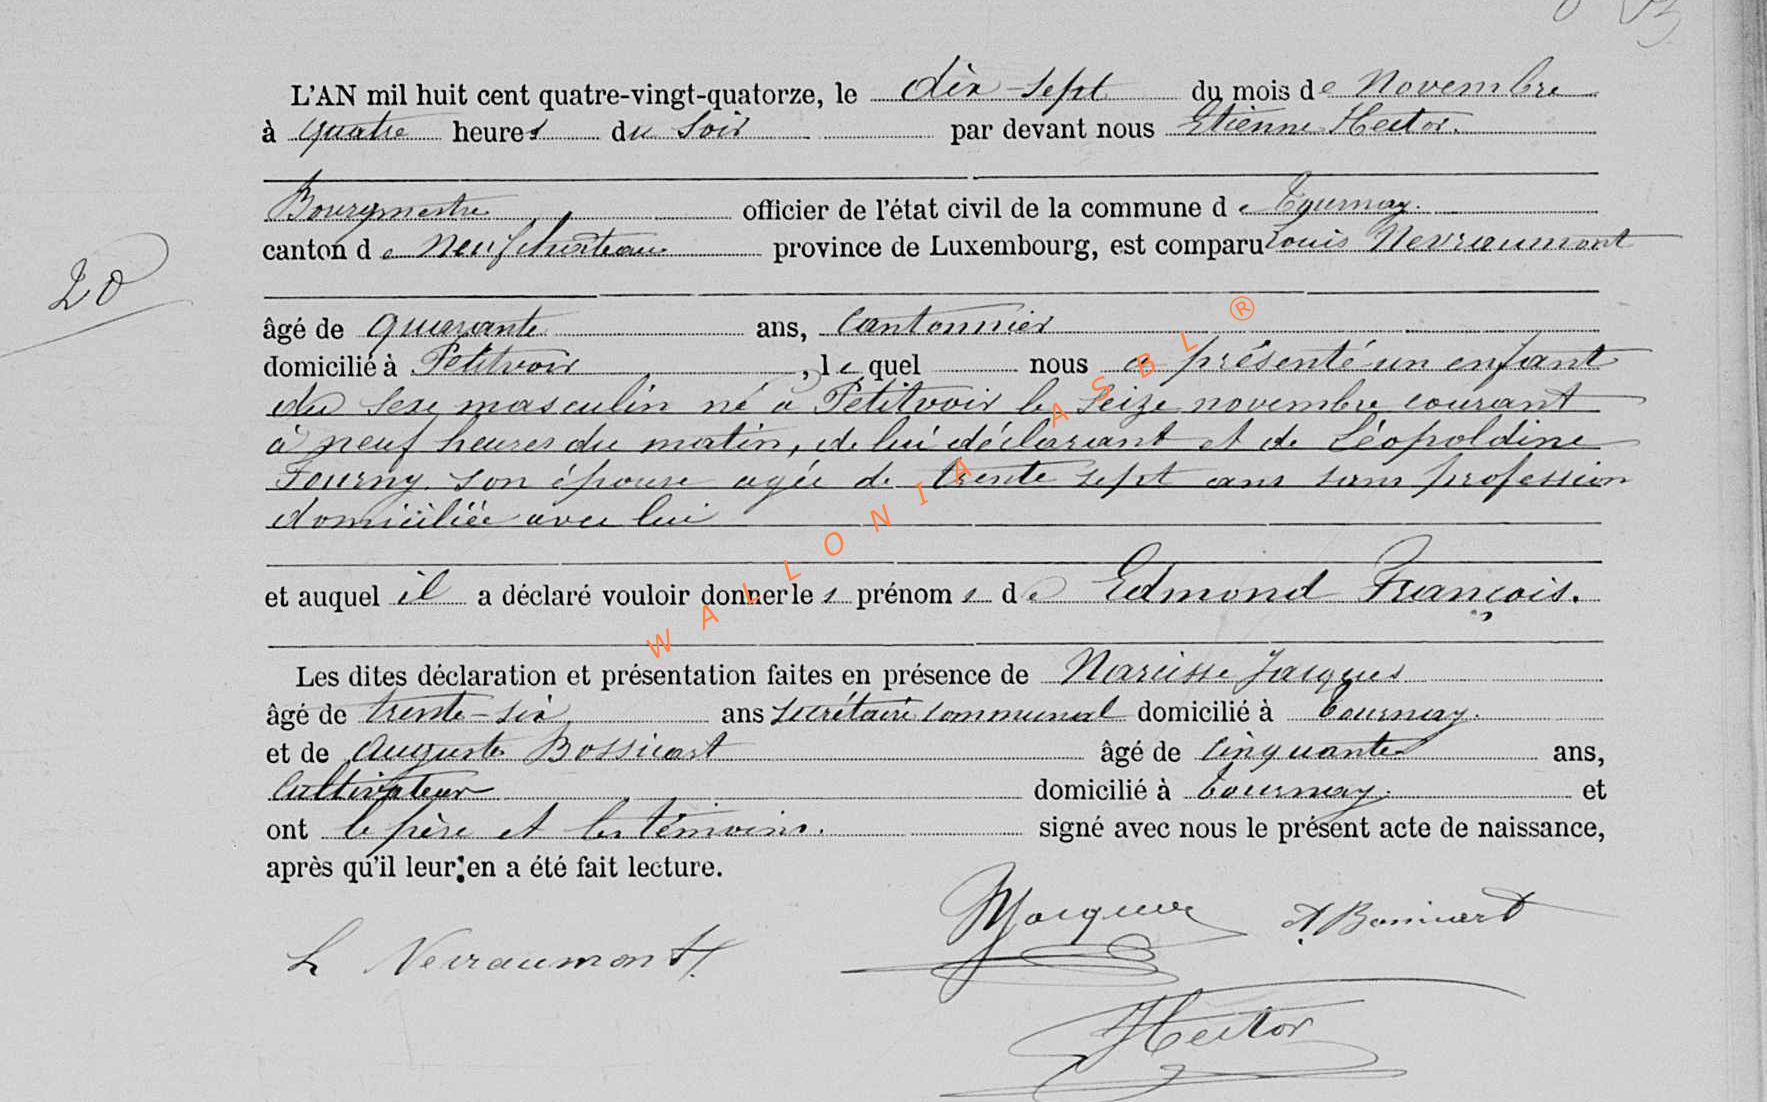 L'AN mil huit cent quatre-vingt-quatorze, le dix sept du mois de Novembre
à quatre heures du soir par devant nous Etienne Hector.
Bourgmestre officier de l'état civil de la commune de Tournay.
canton de Neufchâteau province de Luxembourg, est comparu Louis Nevraumont
20
âgé de quarante ans, Cantonnier
domicilié à Petitvoir, lequel nous a présenté un enfant
du sexe masculin né à Petitvoir le seize novembre courant
à neuf heures du matin, de lui déclarant et de Léopoldine
Fourny son épouse agée de trente sept ans sans profession
domiciliée avec lui
et auquel il a déclaré vouloir donner les prénoms de Edmond François.
Les dites déclaration et présentation faites en présence de Narcisse Jacques
âgé de trente-six ans secrétaire communal domicilié à Tournay.
et de Auguste Bossicart âgé de cinquante ans,
Cultivateur domicilié à Tournay. et
ont le père et les témoins. signé avec nous le présent acte de naissance,
après qu'il leur en a été fait lecture.
NJacques A. Bossicart
L Nevraumont
Hector
WALLONIA ASBL ®